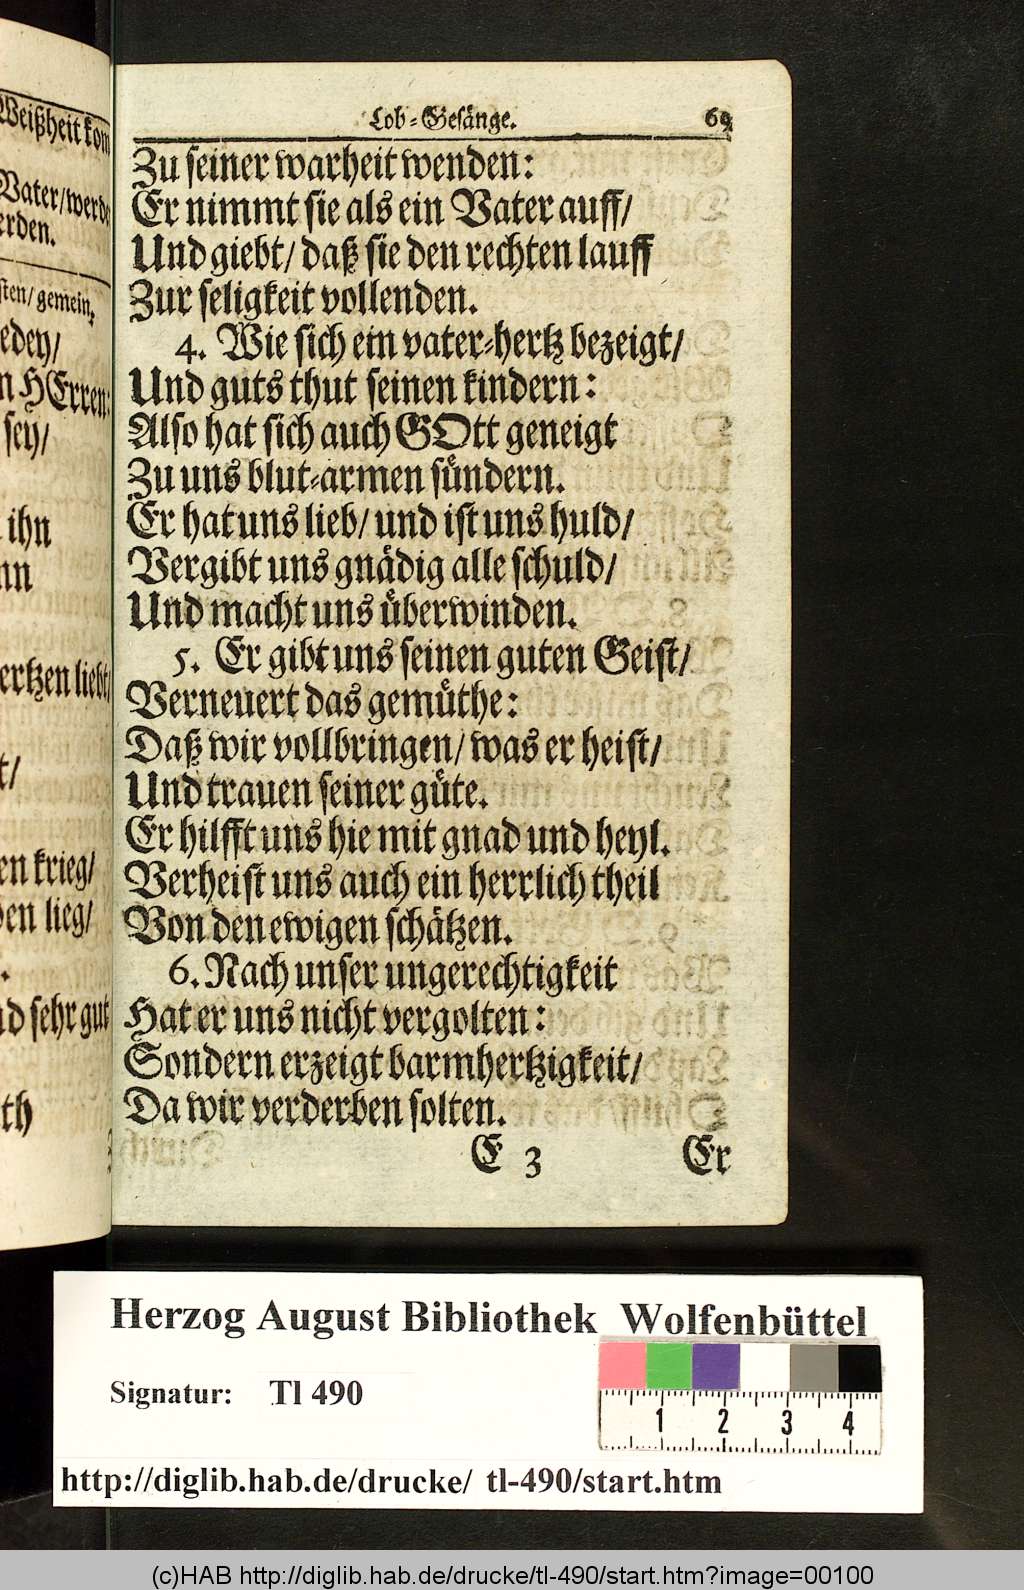 Weißheit kom
Vater/ werde
erden.
sten/ gemein.
edey/
n HErren:
sey/
ihn
nn
ertzen liebt/
t/
en krieg/
en lieg/
nd sehr gut
th
Lob-Gesänge. 69
Zu seiner warheit wenden:
Er nimmt sie als ein Vater auff/
Und giebt/ daß sie den rechten lauff
Zur seligkeit vollenden.
4. Wie sich ein vater-hertz bezeigt/
Und guts thut seinen kindern:
Also hat sich auch GOtt geneigt
Zu uns blut-armen sündern.
Er hat uns lieb/ und ist uns huld/
Vergibt uns gnädig alle schuld/
Und macht uns überwinden.
5. Er gibt uns seinen guten Geist/
Verneuert das gemüthe:
Daß wir vollbringen/ was er heist/
Und trauen seiner güte.
Er hilfft uns hie mit gnad und heyl.
Verheist uns auch ein herrlich theil
Von den ewigen schätzen.
6. Nach unser ungerechtigkeit
Hat er uns nicht vergolten:
Sondern erzeigt barmhertzigkeit/
Da wir verderben solten.
E 3 Er
Herzog August Bibliothek Wolfenbüttel
Signatur: Tl 490
1 2 3 4
http://diglib.hab.de/drucke/ tl-490/start.htm
(c)HAB http://diglib.hab.de/drucke/tl-490/start.htm?image=00100